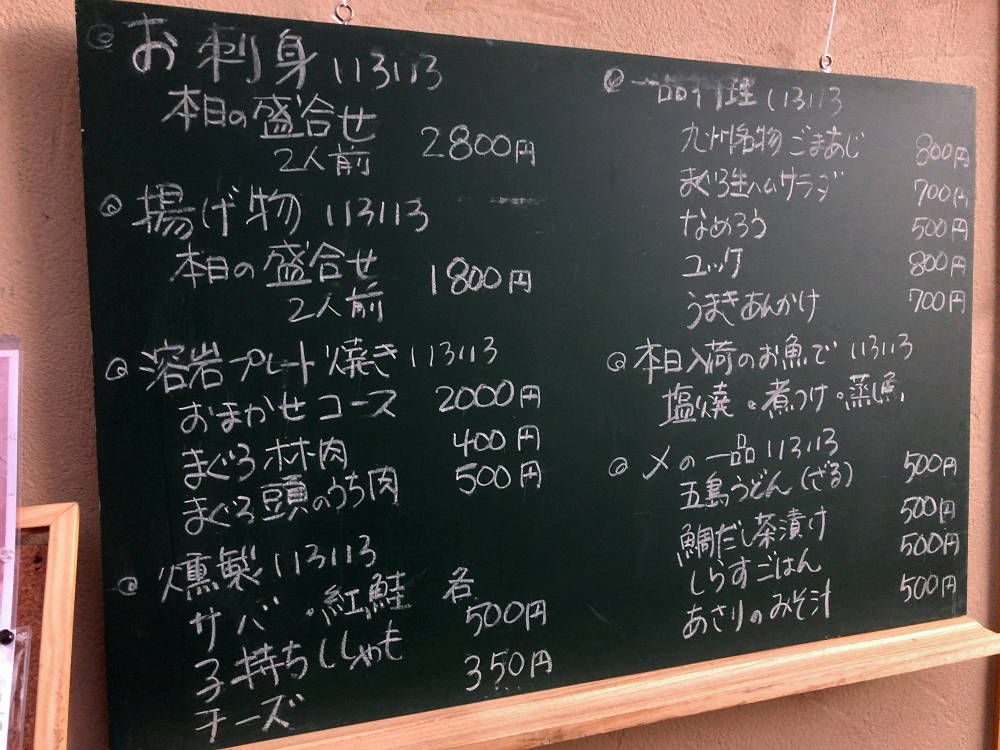 ◎お刺身いろいろ
本日の盛合せ
2人前 2800円
◎揚げ物いろいろ
本日の盛合せ 1800円
2人前
◎溶岩プレート焼きいろいろ
おまかせコース 2000円
まぐろホホ肉 400円
まぐろ頭のうち肉 500円
◎燻製いろいろ
サバ・紅鮭 各500円
子持ちししゃも
チーズ 350円
◎一品料理いろいろ
九州名物ごまあじ 800円
まぐろ生ハムサラダ 700円
なめろう 500円
ユッケ 800円
うまきあんかけ 700円
◎本日入荷のお魚でいろいろ
塩焼・煮つけ・蒸し魚
◎〆の一品いろいろ
五島うどん(ざる) 500円
鯛だし茶漬け 500円
しらすごはん 500円
あさりのみそ汁 500円